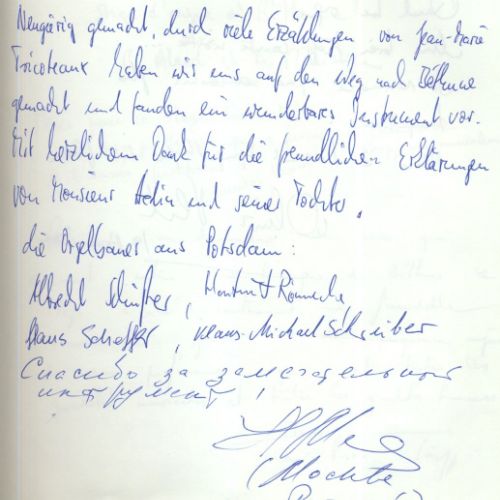 Neugierig gemacht, durch viele Erzählungen von Jean-Marie
Tricoteaux haben wir uns auf den Weg nach Béthune
gemacht und fanden ein wunderbares Instrument vor.
Mit herzlichem Dank für die freundlichen Erklärungen
von Monsieur und seiner Tochter.
die Orgelbauer aus Potsdam:
Albrecht
Klaus Klaus-Michael Schreiber
Спасибо за замечательный
инструмент!